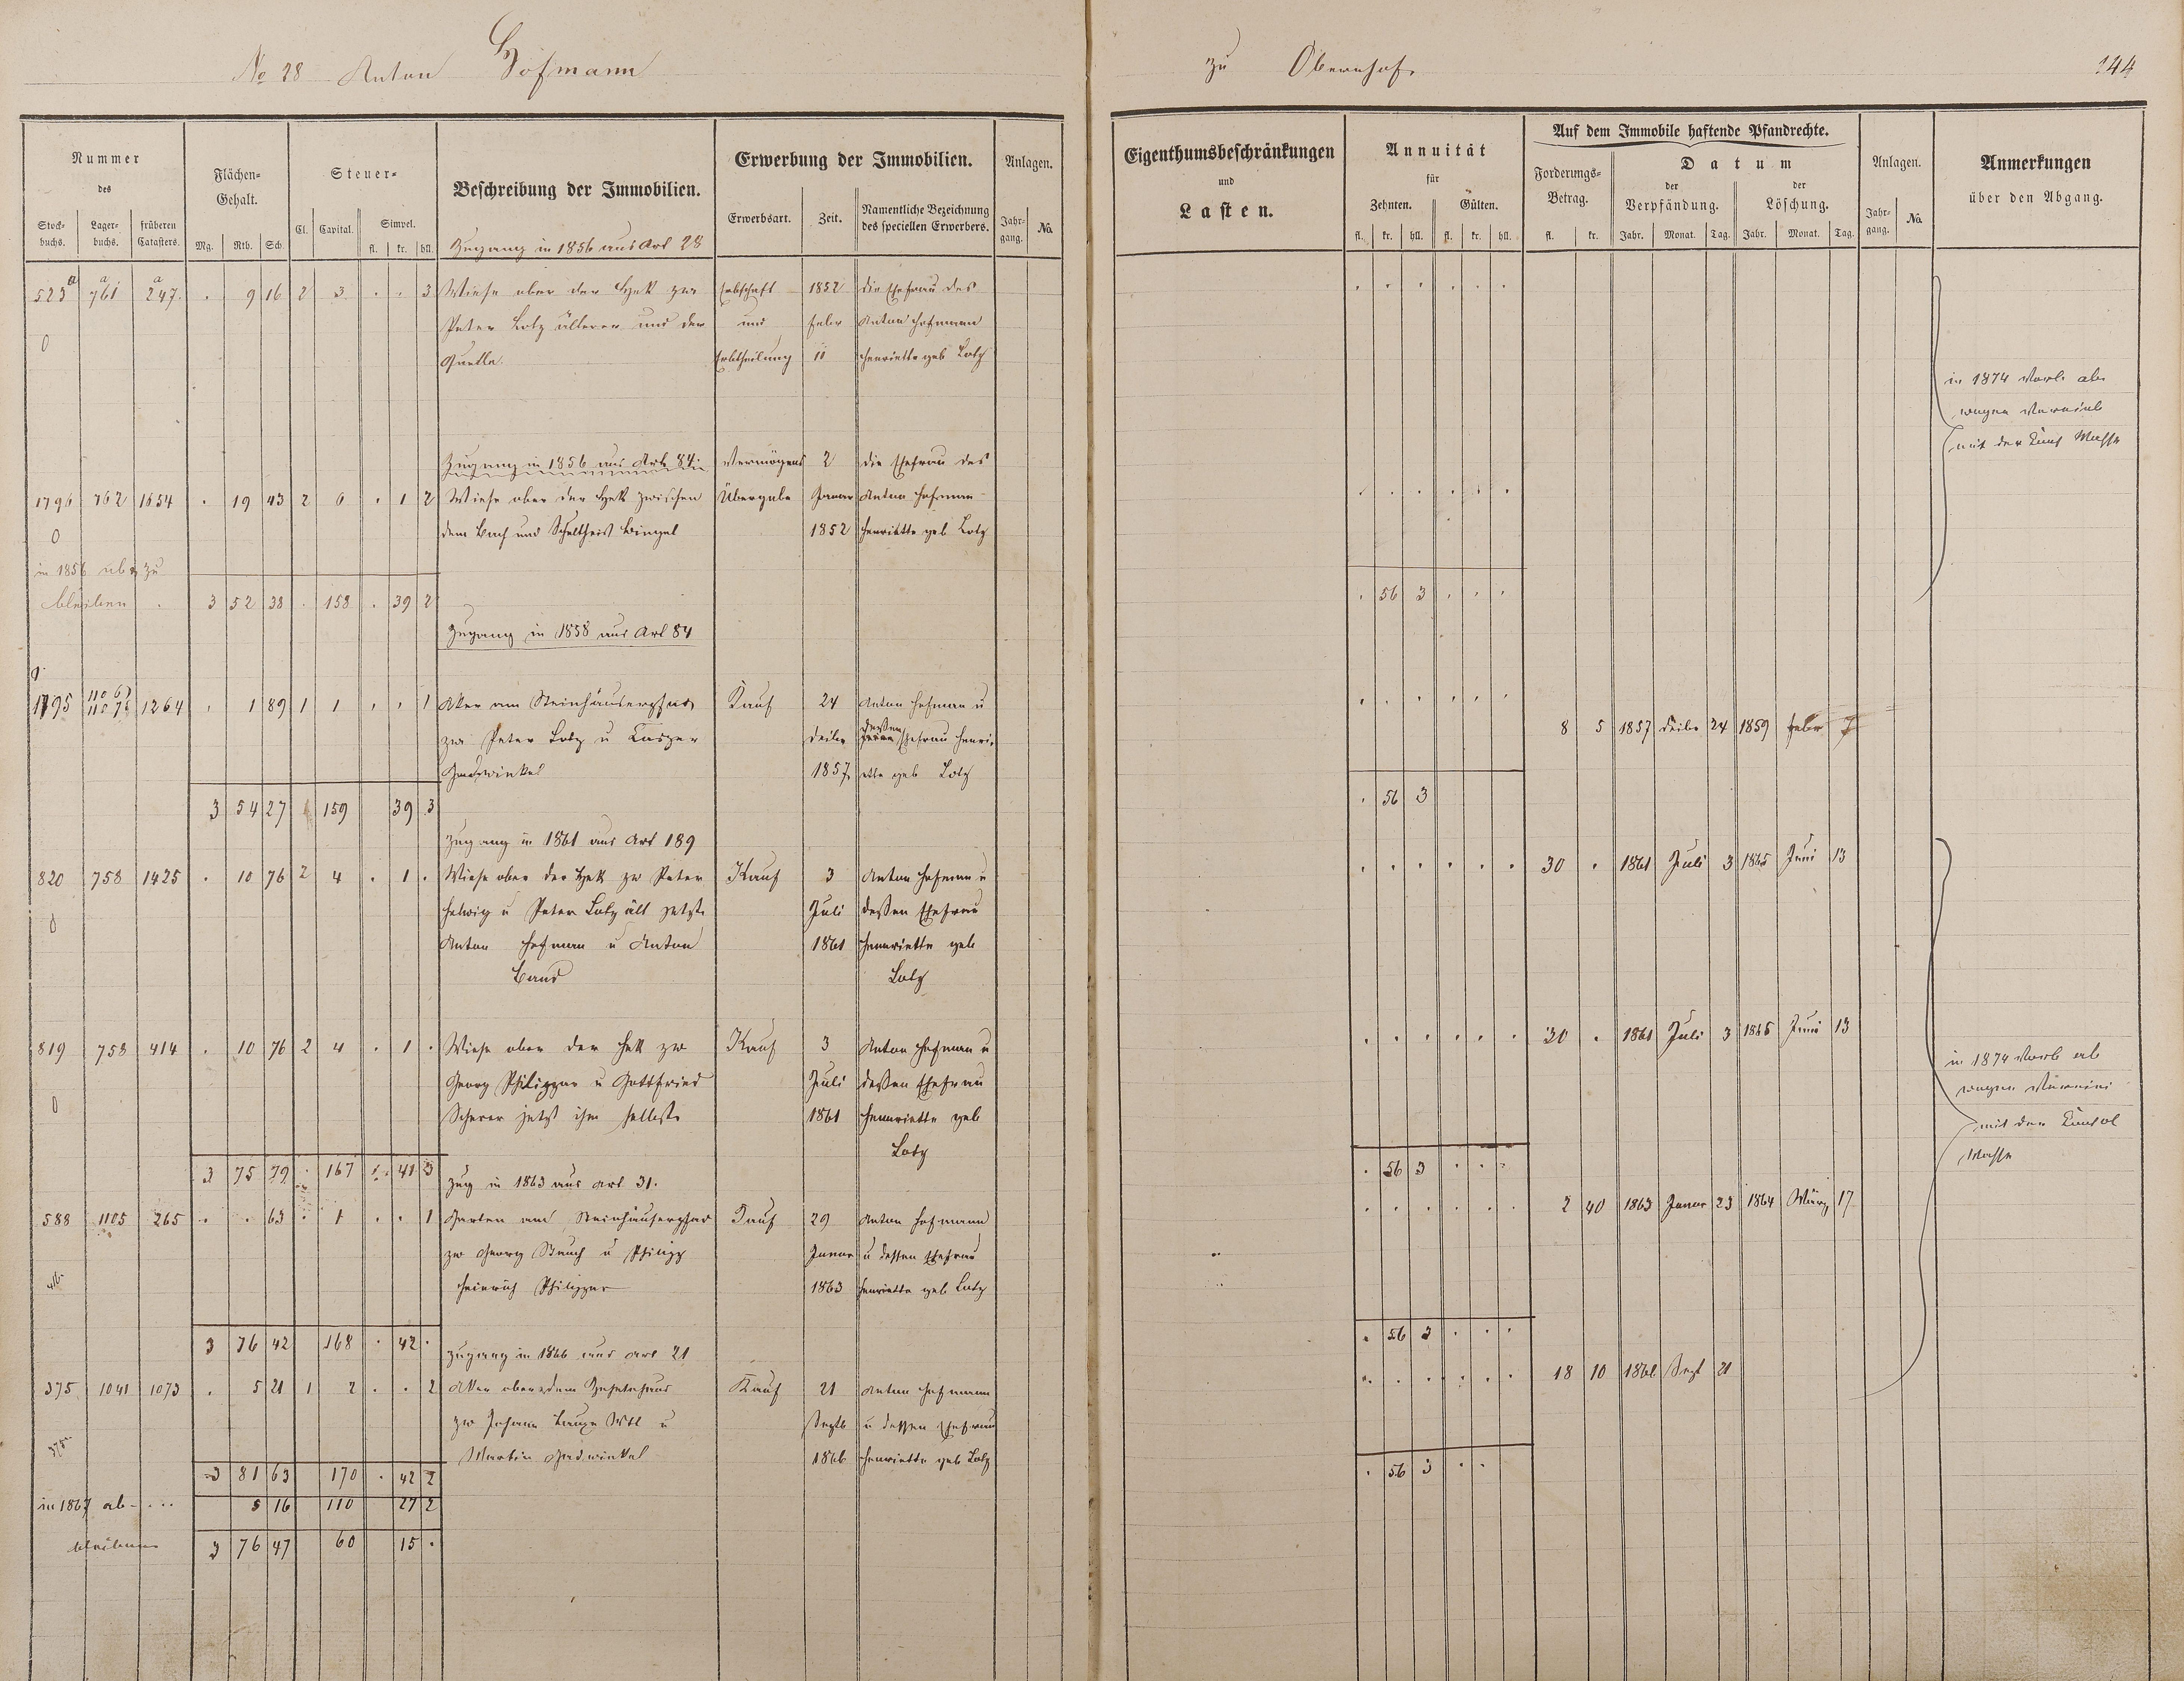 No 28 Anton Hofmann
zu Obernhof
144
Nummer
des
Stock-
buchs.
Lager-
buchs.
früheren
Catasters.
Flächen-
Gehalt.
Mg. Rth. Sch.
Steuer-
Cl. Capital. Simpel.
fl. kr. hll.
Beschreibung der Immobilien.
Erwerbung der Immobilien.
Erwerbsart. Zeit. Namentliche Bezeichnung
des speciellen Erwerbers.
Anlagen.
Jahr-
gang. No.
Eigenthumsbeschränkungen
und
Lasten.
Annuität
für
Zehnten. Gülten.
fl. kr. hll. fl. kr. hll.
Auf dem Immobile haftende Pfandrechte.
Forderungs-
Betrag.
fl. kr.
Datum
der
Verpfändung.
der
Löschung.
Jahr. Monat. Tag. Jahr. Monat. Tag.
Anlagen.
Jahr-
gang. No.
Anmerkungen
über den Abgang.
Zugang in 1856 aus Art 28
523a 761a 247a . 9 16 2 3 . . 3 Wiese ober der Heck zw Erbschaft 1852 die Ehefrau des
Peter Lotz älterer und der und Febr Anton Hofmann
Quelle. Erbtheilung 11 Henriette geb Lotz
in 1874 ab
wegen
mit der Masse
Zugang in 1856 aus Art 84 Vermögens 2 die Ehefrau des
1796 762 1654 . 19 43 2 6 . 1 2 Wiese ober der Heck zwischen Übergabe Januar Anton Hofmann
0 dem Bach und Schultheis Bingel 1852 Henriette geb Lotz
in 1856 zu
bleiben . 3 52 38 . 158 . 39 2 . 56 3 . . .
Zugang in 1858 aus Art 84
1795 1106 1107 1264 . 1 89 1 1 . . 1 Acker am Steinhäuserpfad Kauf 24 Anton Hofmann u
zw Peter Lotz u Caspar Decbr dessen Ehefrau Henri-
Gadwinkel 1857 ette geb Lotz
8 5 1857 Decbr 24 1859 Febr 7
3 54 27 159 39 3 . 56 3
Zugang in 1861 aus Art 189
820 758 1425 . 10 76 2 4 . 1 . Wiese ober der Heck zw Peter Kauf 3 Anton Hofmann u
30 . 1861 Juli 3 1865 Juni 13
0 Helwig u Peter Lotz ält jetzt Juli dessen Ehefrau
Anton Hofmann u Anton 1861 Henriette geb
Baus Lotz
819 758 414 . 10 76 2 4 . 1 . Wiese ober der Heck zw Kauf 3 Anton Hofmann u
30 . 1861 Juli 3 1865 Juni 13
Georg Philippar u Gottfried Juli dessen Ehefrau
0 Scherer jetzt ihm selbst 1861 Henriette geb
Lotz
in 1874 ab
wegen
mit der Consol
Masse
3 75 79 . 167 . 41 3 . 56 3 . . .
Zug in 1863 aus Art 31.
588 1105 265 . . 63 . 1 . . 1 Garten am Steinhäuserpfad Kauf 29 Anton Hofmann
2 40 1863 Januar 23 1864 März 17
zw Georg Strauch u Philipp Januar u dessen Ehefrau
Heinrich Philippar 1863 Henriette geb Lotz
3 76 42 168 . 42 . . 56 3 . . .
Zugang in 1866 aus Art 21
375 1041 1073 . 5 21 1 2 . . 2 Acker ober dem Kauf 21 Anton Hofmann
18 10 1866 Sept 21
zw Johann Wtb u Septb u dessen Ehefrau
Martin Gadwinkel 1866 Henriette geb Lotz
3 81 63 170 . 42 2 . 56 3 . .
in 1867 ab - . . . 5 16 110 27 2
bleiben 3 76 47 60 15 .